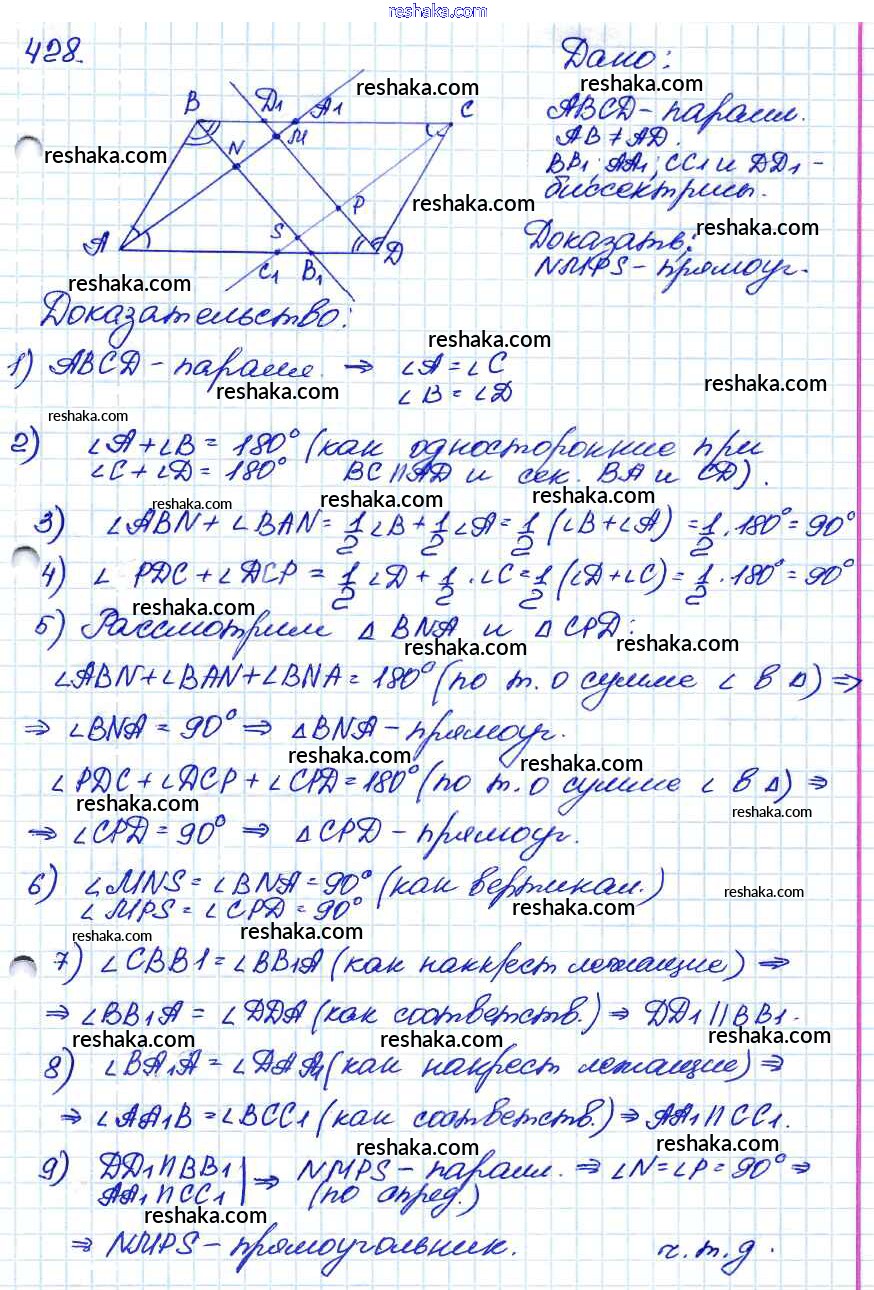 reshaka.com
428.
Дано:
reshaka.com
reshaka.com
B D₁ A₁ C
ABCD - паралл.
AB ≠ AD.
reshaka.com
N M
BB₁; AA₁; CC1 и DD₁ -
биссектрисы.
reshaka.com
P
S
A D
C₁ B₁
Доказать:
reshaka.com
NMPS - прямоуг.
reshaka.com
Доказательство:
reshaka.com
1) ABCD - паралл. ⇒ ∠A = ∠C
∠B = ∠D
reshaka.com
reshaka.com
reshaka.com
2) ∠A + ∠B = 180° (как односторонние при
∠C + ∠D = 180° BC || AD и сек. BA и CD).
reshaka.com
reshaka.com
reshaka.com
3) ∠ABN + ∠BAN = 1/2 ∠B + 1/2 ∠A = 1/2 (∠B + ∠A) = 1/2 · 180° = 90°
4) ∠ PDC + ∠DCP = 1/2 ∠D + 1/2 · ∠C = 1/2 (∠D + ∠C) = 1/2 · 180° = 90°
reshaka.com
5) Рассмотрим △ BNA и △ CPD:
reshaka.com
reshaka.com
∠ABN + ∠BAN + ∠BNA = 180° (по т. о сумме ∠ в △) ⇒
reshaka.com
⇒ ∠BNA = 90° ⇒ △BNA - прямоуг.
reshaka.com
reshaka.com
∠PDC + ∠DCP + ∠CPD = 180° (по т. о сумме ∠ в △) ⇒
reshaka.com
reshaka.com
⇒ ∠CPD = 90° ⇒ △CPD - прямоуг.
6) ∠MNS = ∠BNA = 90° (как вертикал.)
∠MPS = ∠CPD = 90°
reshaka.com
reshaka.com
reshaka.com
reshaka.com
7) ∠CBB1 = ∠BB₁A (как накрест лежащие) ⇒
⇒ ∠BB₁A = ∠DDA (как соответств.) ⇒ DD₁ || BB₁.
reshaka.com
reshaka.com
reshaka.com
8) ∠BA₁A = ∠DAA₁ (как накрест лежащие) ⇒
reshaka.com
⇒ ∠AA₁B = ∠BCC1 (как соответств.) ⇒ AA₁ || CC1.
reshaka.com
reshaka.com
reshaka.com
9) DD₁ || BB₁
AA₁ || CC₁ ⇒ NMPS - паралл. ⇒ ∠N = ∠P = 90° ⇒
(по опред.)
reshaka.com
reshaka.com
⇒ NMPS - прямоугольник. ч.т.д.
reshaka.com